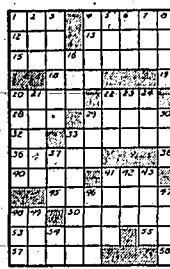 1 2 3 4 5 6 7 8
12 13
15 16
18 19
20 21 22 23 24
28 29 30
32 33
36 37 38
40 41 42 43
45 46 47
48 49 50
53 54 55
57 58